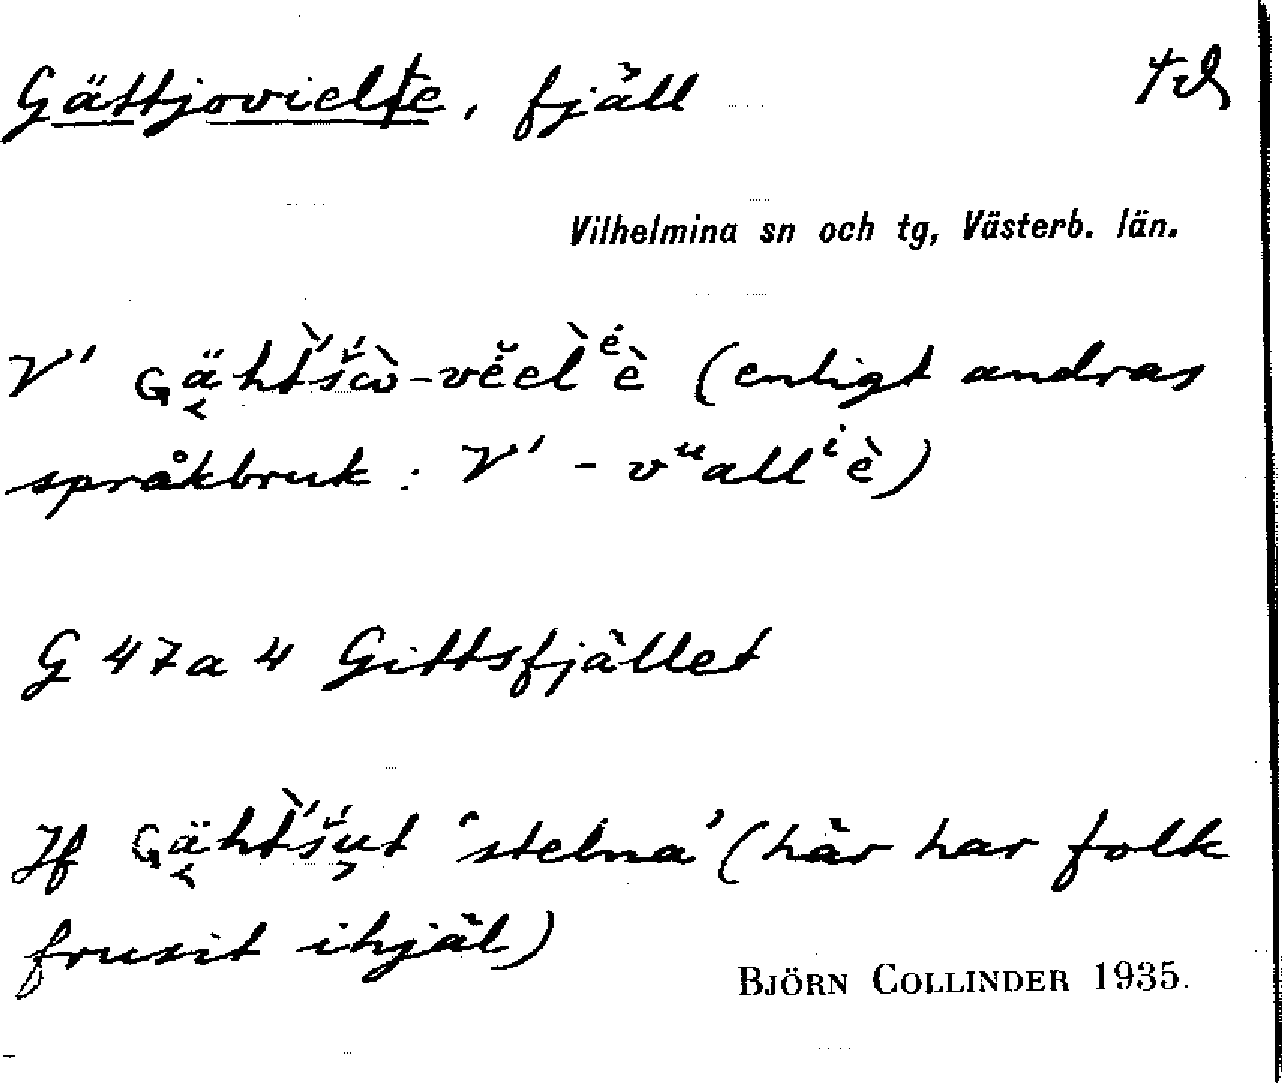 Gättjovielte, fjäll
Vilhelmina sn och tg, Västerb. län.
V' Gä̬ht̀'śὼ-vĕel̀ᵉ́è (enligt andras
språkbruk: V' - vᵘallⁱè)
G 47a 4 Gittsfjället
Jf Gä̬ht̀'śut 'stelna' (här har folk
frusit ihjäl)
BJÖRN COLLINDER 1935.